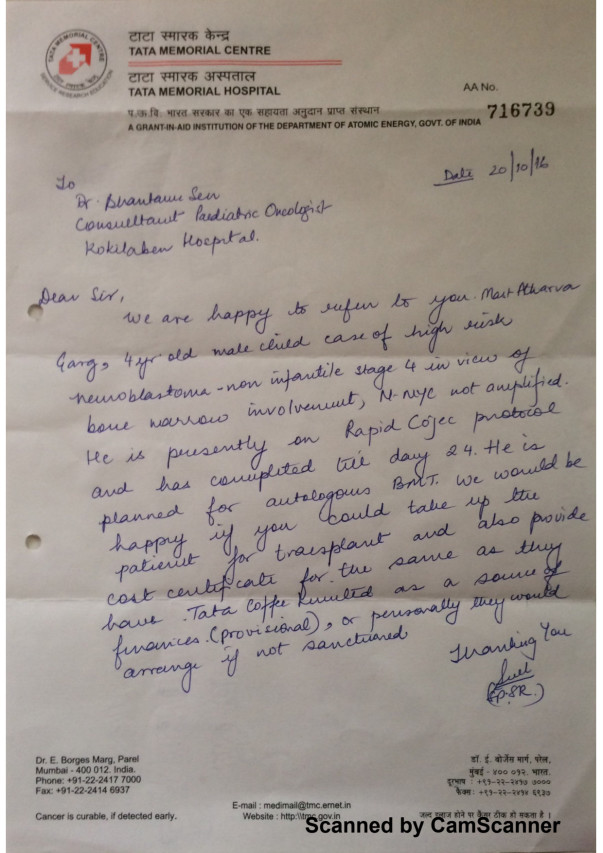 टाटा स्मारक केन्द्र
TATA MEMORIAL CENTRE
टाटा स्मारक अस्पताल
TATA MEMORIAL HOSPITAL
AA No.
716739
प.ऊ.वि. भारत सरकार का एक सहायता अनुदान प्राप्त संस्थान
A GRANT-IN-AID INSTITUTION OF THE DEPARTMENT OF ATOMIC ENERGY, GOVT. OF INDIA
TATA MEMORIAL CENTRE
SERVICE RESEARCH EDUCATION
Date 20/10/16
To
Dr. Shantanu Sen
Consultant Paediatric Oncologist
Kokilaben Hospital.
Dear Sir,
We are happy to refer to you. Mast Atharva
Garg, 4 yr old male child case of high risk
neuroblastoma - non infantile stage 4 in view of
bone marrow involvement, N-myc not amplified.
He is presently on Rapid Cojec protocol
and has completed till day 24. He is
planned for autologous BMT. We would be
happy if you could take up the
patient for transplant and also provide
cost certificate for the same as they
have Tata Coffee Limited as a source of
finances. (provisional), or personally they would
arrange if not sanctioned
Thanking You
Dr. E. Borges Marg, Parel
Mumbai - 400 012. India.
Phone: +91-22-2417 7000
Fax: +91-22-2414 6937
Cancer is curable, if detected early.
E-mail : medimail@tmc.ernet.in
Website : http:\\tmc.gov.in
डॉ. ई. बोर्जेस मार्ग, परेल,
मुंबई - ४०० ०१२. भारत.
दूरभाष : +९१-२२-२४१७ ७०००
फैक्स: +९१-२२-२४१४ ६९३७
Scanned by CamScanner